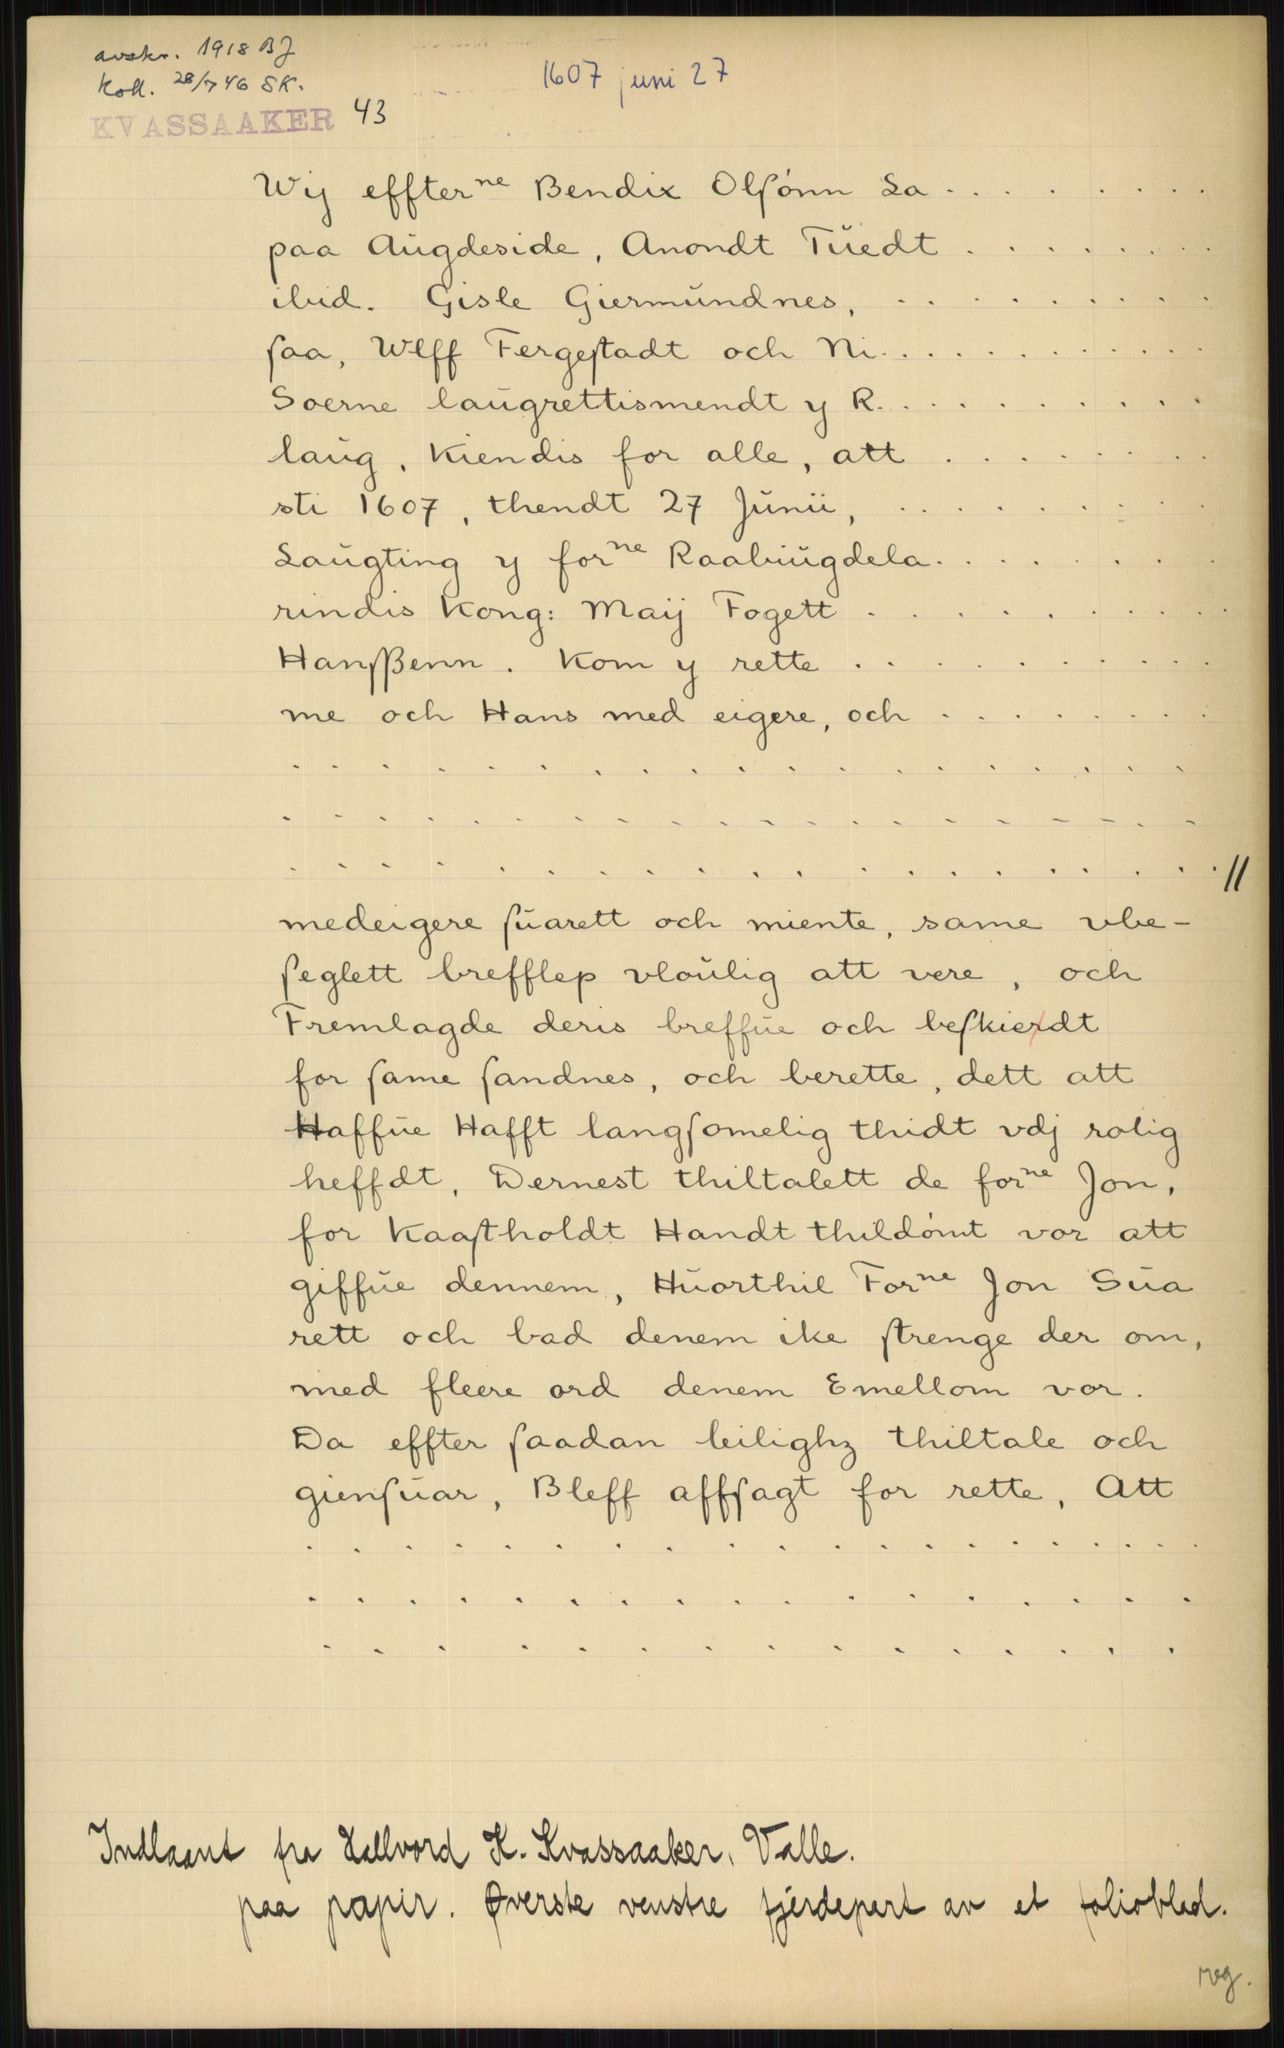 avskr. 1918 BJ
Koll. 28/7 46 SK.
1607 juni 27
KVASSAAKER 43
Wij effterⁿᵉ Bendix Olſónn La . . . . . . . . .
paa Aŭgdeside, Anondt Tŭedt . . . . . . . .
ibid. Gisle Giermŭndnes, . . . . . . . . . .
ſaa, Wlff Fergeſtadt och Ni. . . . . . . . . . . .
Soerne laŭgrettismendt y R. . . . . . . . . . .
laŭg, Kiendis for alle, att . . . . . . . .
sti 1607, thendt 27 Jŭnii, . . . . . . . . . .
Laŭgting y forⁿᵉ Raabiŭgdela. . . . . . . . .
rindis Kong: Maij Fogett . . . . . . . . .
Hanſßenn. Kom y rette . . . . . . . . . . .
me och Hans med eigere, och . . . . . . . .
. . . . . . . . . . . . . . . . . .
. . . . . . . . . . . . . . . . . .
. . . . . . . . . . . . . . . . . . //
medeigere ſŭarett och miente, same vbe-
ſeglett brefflep vloŭlig att vere, och
Fremlagde deris breffŭe och beſkierdt
for ſame ſandnes, och berette, dett att
Haffŭe Hafft langſomelig thidt vdj rolig
heffdt, Dernest thiltalett de forⁿᵉ Jon,
for Kaaſtholdt Handt thildómt vor att
giffŭe dennem, Hŭorthil Forⁿᵉ Jon Sŭa
rett och bad denem ike ſtrenge der om,
med fleere ord denem Emellom vor.
Da effter ſaadan leilighz thiltale och
gienſŭar, Bleff affſagt for rette, Att
. . . . . . . . . . . . . . . . . .
. . . . . . . . . . . . . . . . .
. . . . . . . . . . . . . . .
Indlaant fra Hallvord K. Kvassaaker, Valle.
paa papir. Øverste venstre fjerdepart av et folioblad.
reg.